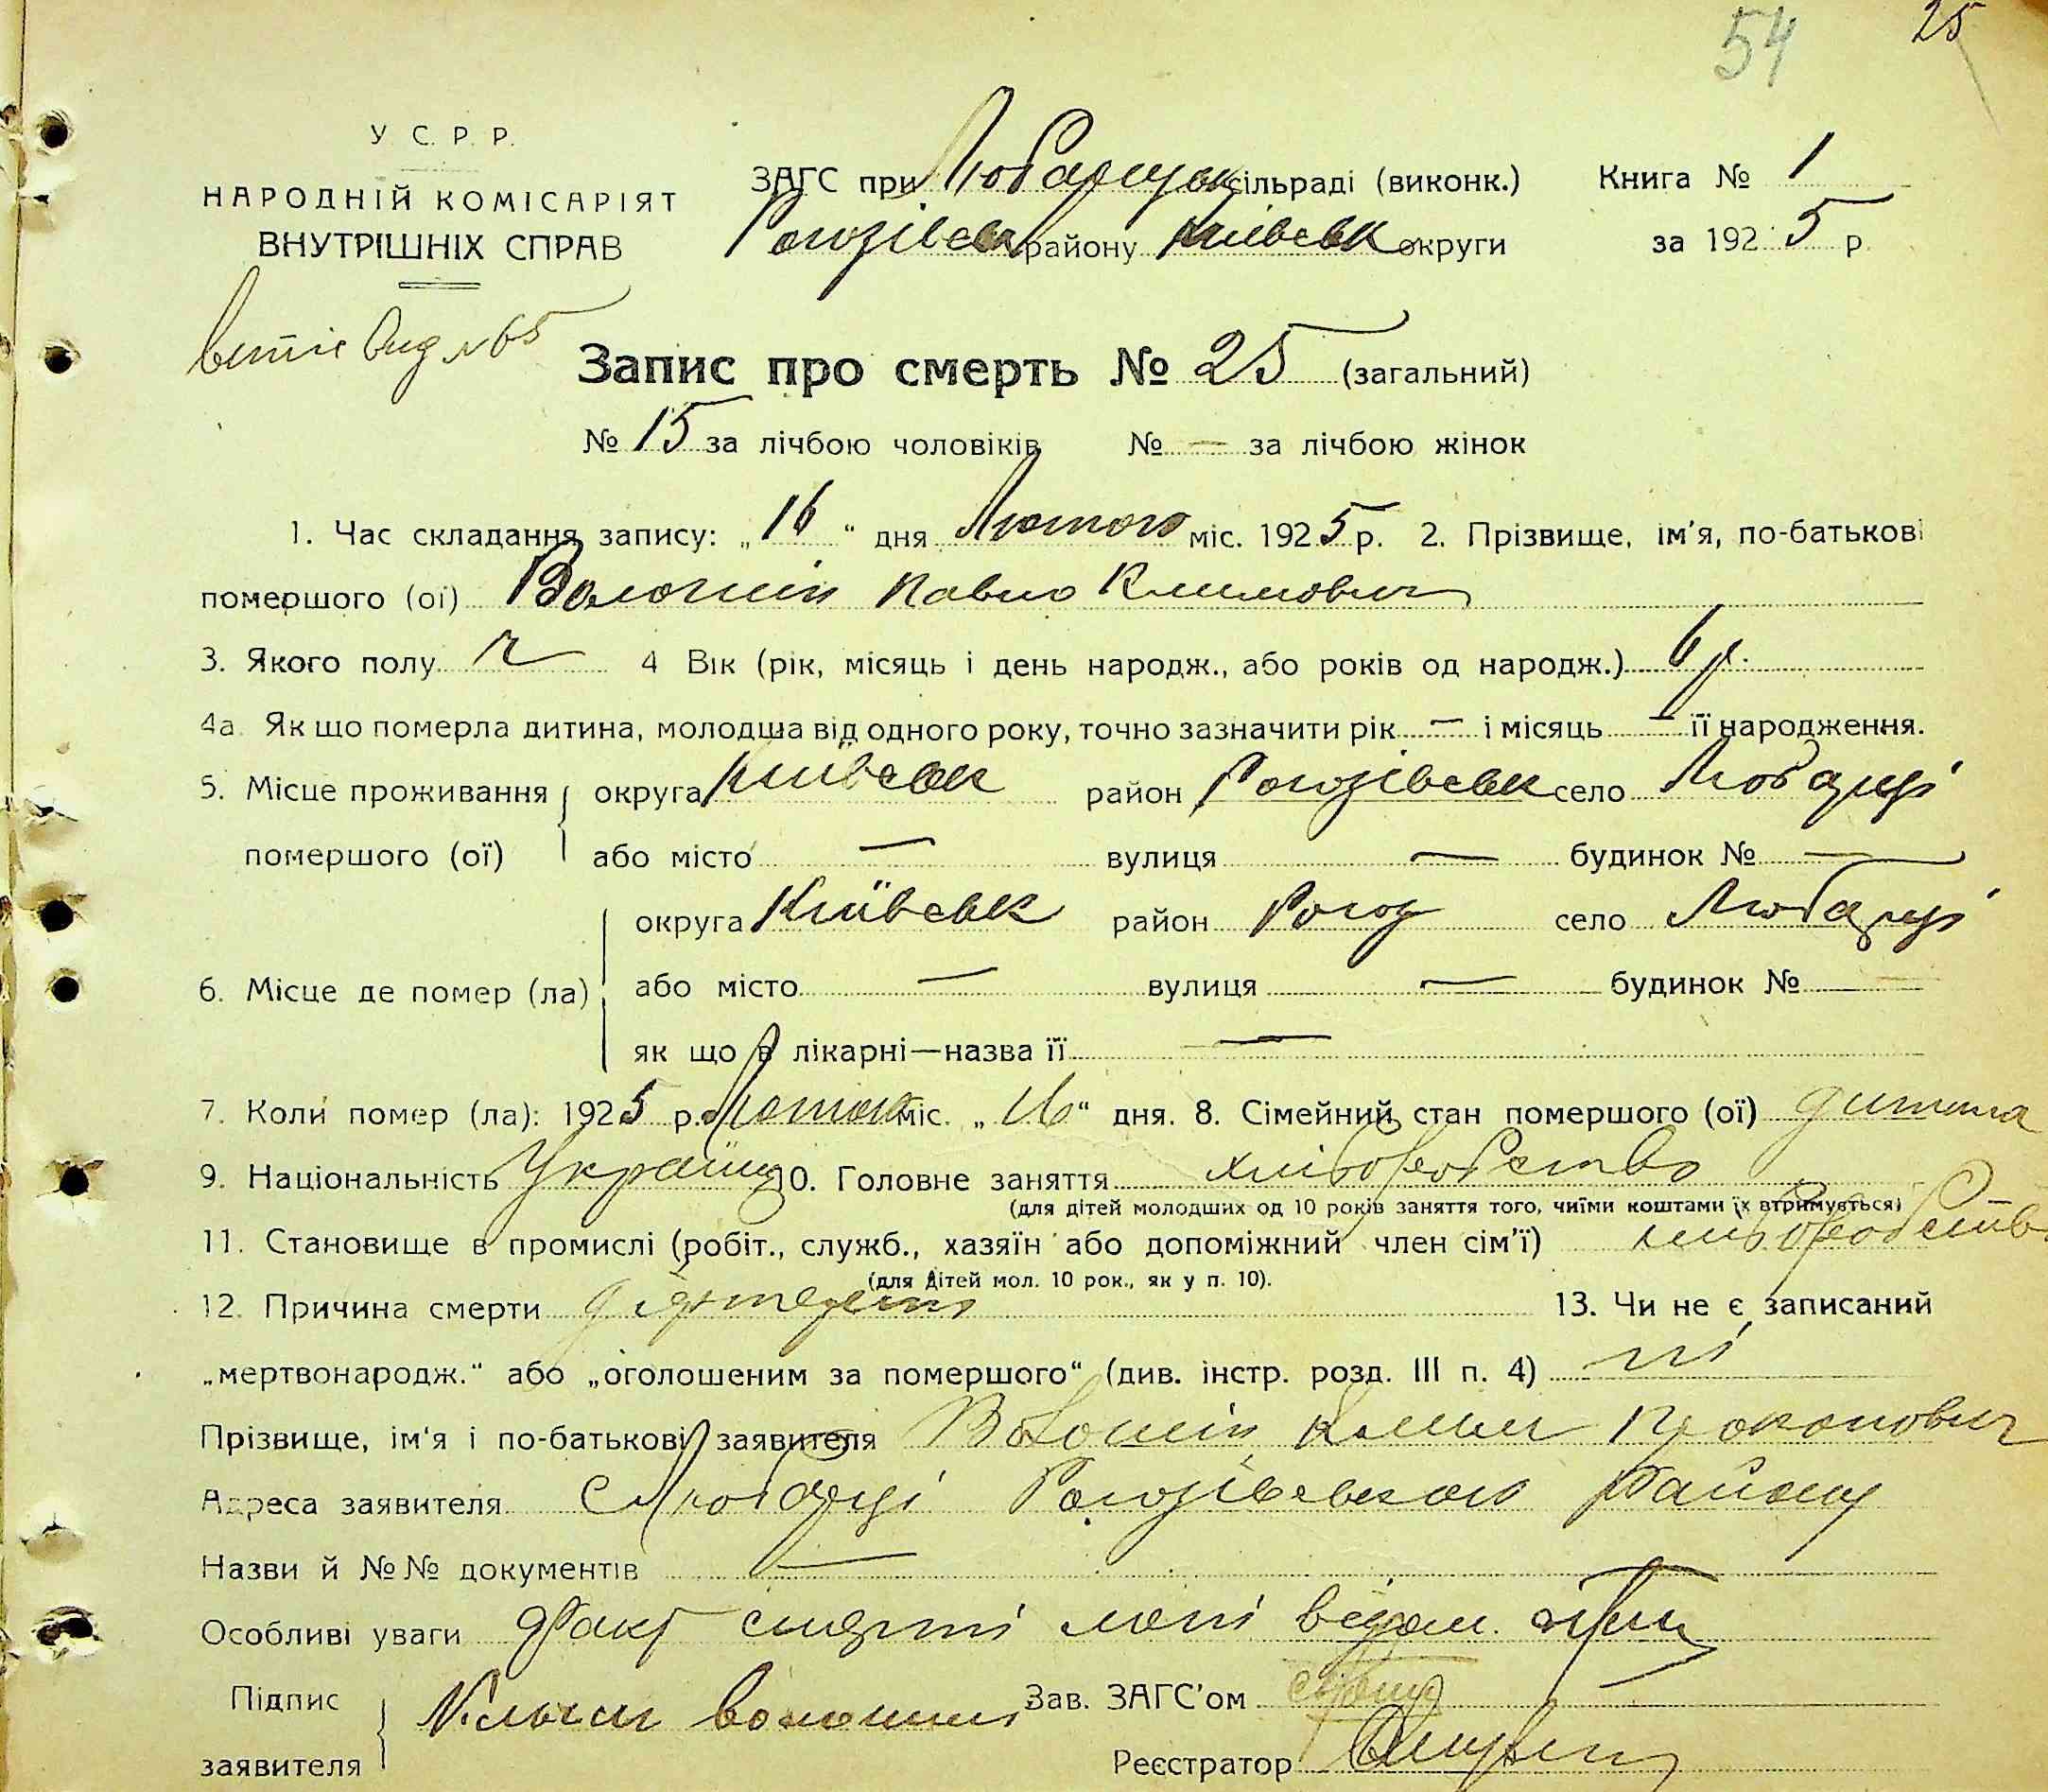 54 25
У С. Р. Р.
НАРОДНІЙ КОМІСАРІЯТ
ВНУТРІШНІХ СПРАВ
ЗАГС при Любарцськ сільраді (виконк.) Книга № 1
Рогозівськ району Київськ округи за 1925 р.
№ 65
Запис про смерть № 25 (загальний)
№ 15 за лічбою чоловіків № — за лічбою жінок
1. Час складання запису: „16“ дня Лютого міс. 1925 р. 2. Прізвище, ім'я, по-батькові
помершого (ої) Волошін Павло Климович
3. Якого полу ч 4 Вік (рік, місяць і день народж., або років од народж.) 6 р.
4а. Як що померла дитина, молодша від одного року, точно зазначити рік — і місяць — її народження.
5. Місце проживання округа Київськ район Рогозівськ село Любарці
помершого (ої) або місто — вулиця — будинок № —
округа Київськ район Рогоз село Любарці
6. Місце де помер (ла) або місто — вулиця — будинок № —
як що в лікарні—назва її —
7. Коли помер (ла): 1925 р. Лютого міс. „16“ дня. 8. Сімейний стан помершого (ої) дитина
9. Національність Україн 10. Головне заняття хліборобство
(для дітей молодших од 10 років заняття того, чиїми коштами їх втримується)
11. Становище в промислі (робіт., служб., хазяїн або допоміжний член сім'ї) хліборобств
(для дітей мол. 10 рок., як у п. 10).
12. Причина смерти 13. Чи не є записаний
„мертвонародж.“ або „оголошеним за помершого“ (див. інстр. розд. III п. 4) ні
Прізвище, ім'я і по-батькові заявителя Волошін Клим Прокопович
Адреса заявителя С Любарці Рогозівського Району
Назви й №№ документів —
Особливі уваги Факт смерті мені відом.
Підпис Клим Волошин Зав. ЗАГС'ом
заявителя Реєстратор